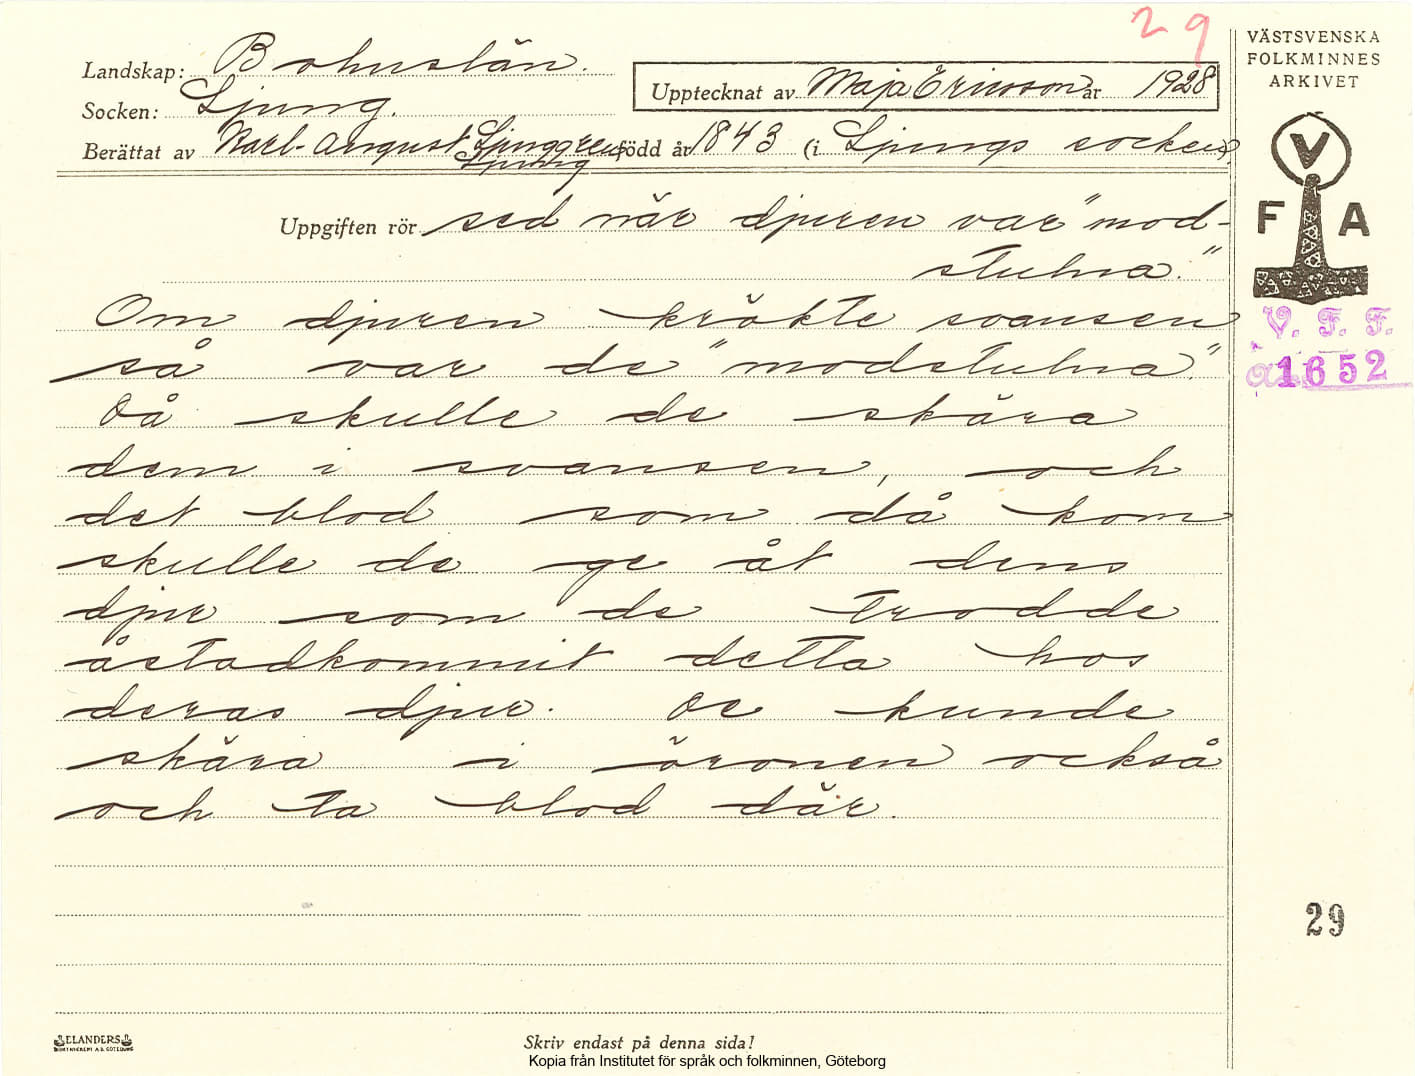 29
Landskap: Bohuslän.
Socken: Ljung.
Upptecknat av Maja Ericsson år 1928
Berättat av Karl-August Ljunggren född år 1843 (i Ljungs socken)
Ljung
Uppgiften rör sed när djuren var "mod-
stulna."
Om djuren krökte svansen
så var de "modstulna".
Då skulle de skära
dem i svansen, och
det blod som då kom
skulle de ge åt dens
djur som de trodde
åstadkommit detta hos
deras djur. De kunde
skära i öronen också
och ta blod där.
VÄSTSVENSKA
FOLKMINNES
ARKIVET
V
F A
V. F. F.
1652
29
ELANDERS
BOKTRYCKERI A.B. GÖTEBORG
Skriv endast på denna sida!
Kopia från Institutet för språk och folkminnen, Göteborg